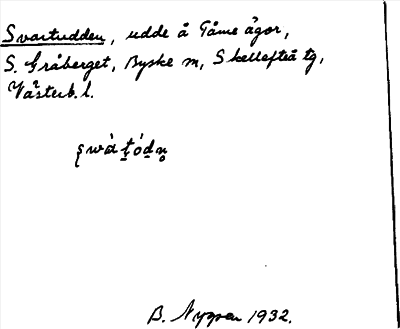 Svartudden, udde å Tåme ågor,
S. Gråberget, Byske sn, Skellefteå tg,
Västerb. l.
B. Nygren 1932.